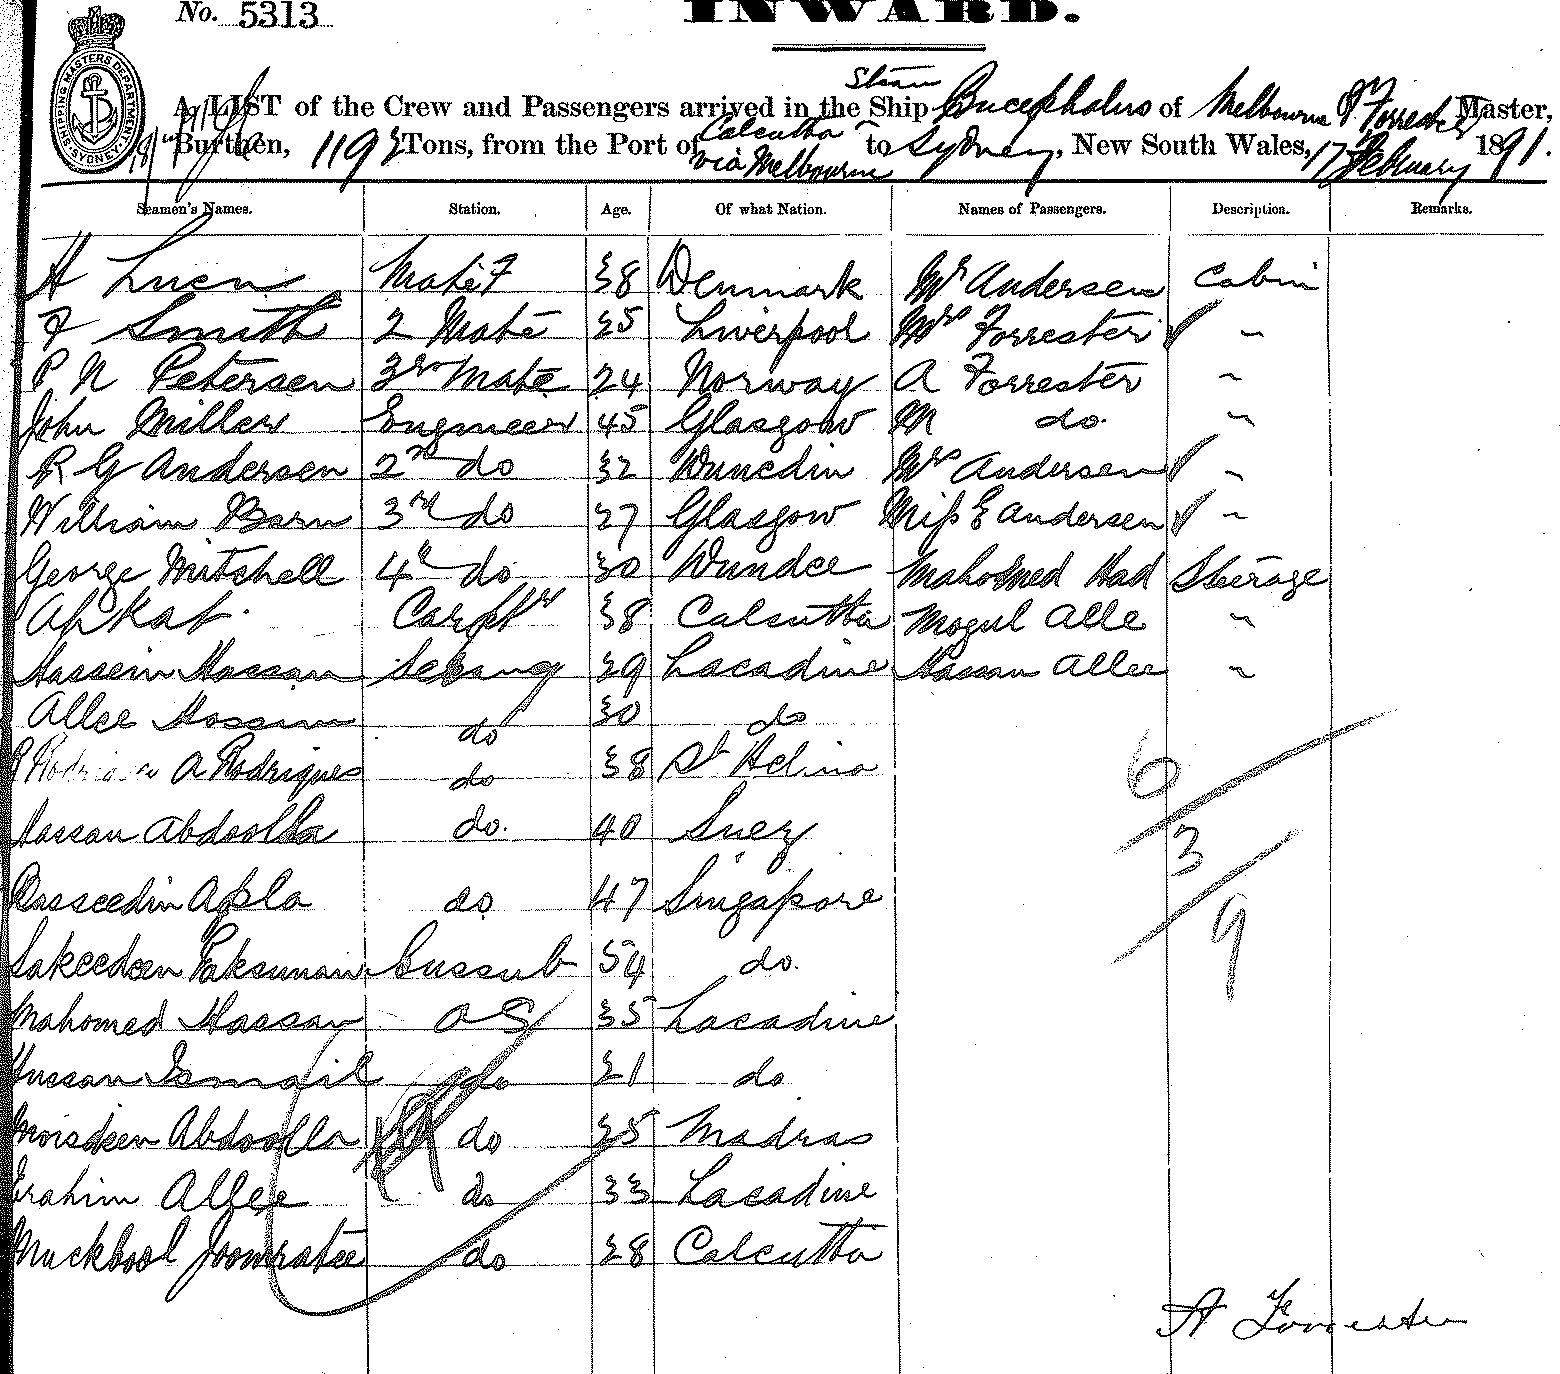 No. 5313
INWARD.
SHIPPING MASTERS DEPARTMENT SYDNEY
Steam
A LIST of the Crew and Passengers arrived in the Ship Bucephalus of Melbourne Forrester Master,
Calcutta
Burthen, Tons, from the Port of via Melbourne to Sydney, New South Wales, 17 February 1891.
Seamen's Names. Station. Age. Of what Nation. Names of Passengers. Description. Remarks.
H Mate 38 Denmark Mr Andersen Cabin
F Smith 2 Mate 25 Liverpool Mrs Forrester "
P N Petersen 3rd Mate 24 Norway A Forrester "
John Miller Engineer 45 Glasgow M do. "
R G Andersen 2nd do 32 Dunedin Mrs Andersen "
William Barn 3rd do 27 Glasgow Miss E Andersen "
George Mitchell 4th do 30 Dundee Mahomed Had Steerage
Ah Kat. Carptr 38 Calcutta Mogul Alle "
Hassein Hassan 39 Lacadine Hassan Allee "
Allee Hossin do 30 do
A Rodrigues do 38 St Helina
Hassan Abdoolla do. 40 Suez
do 47 Singapore
Cussub 54 do.
Mahomed Hassan OS 35 Lacadine
Hussan Ismail do 21 do
Moisdeen Abdoolla do 25 Madras
Ibrahim Allee do 33 Lacadine
Muckbool Joomratee do 28 Calcutta
6
3
9
A Forrester